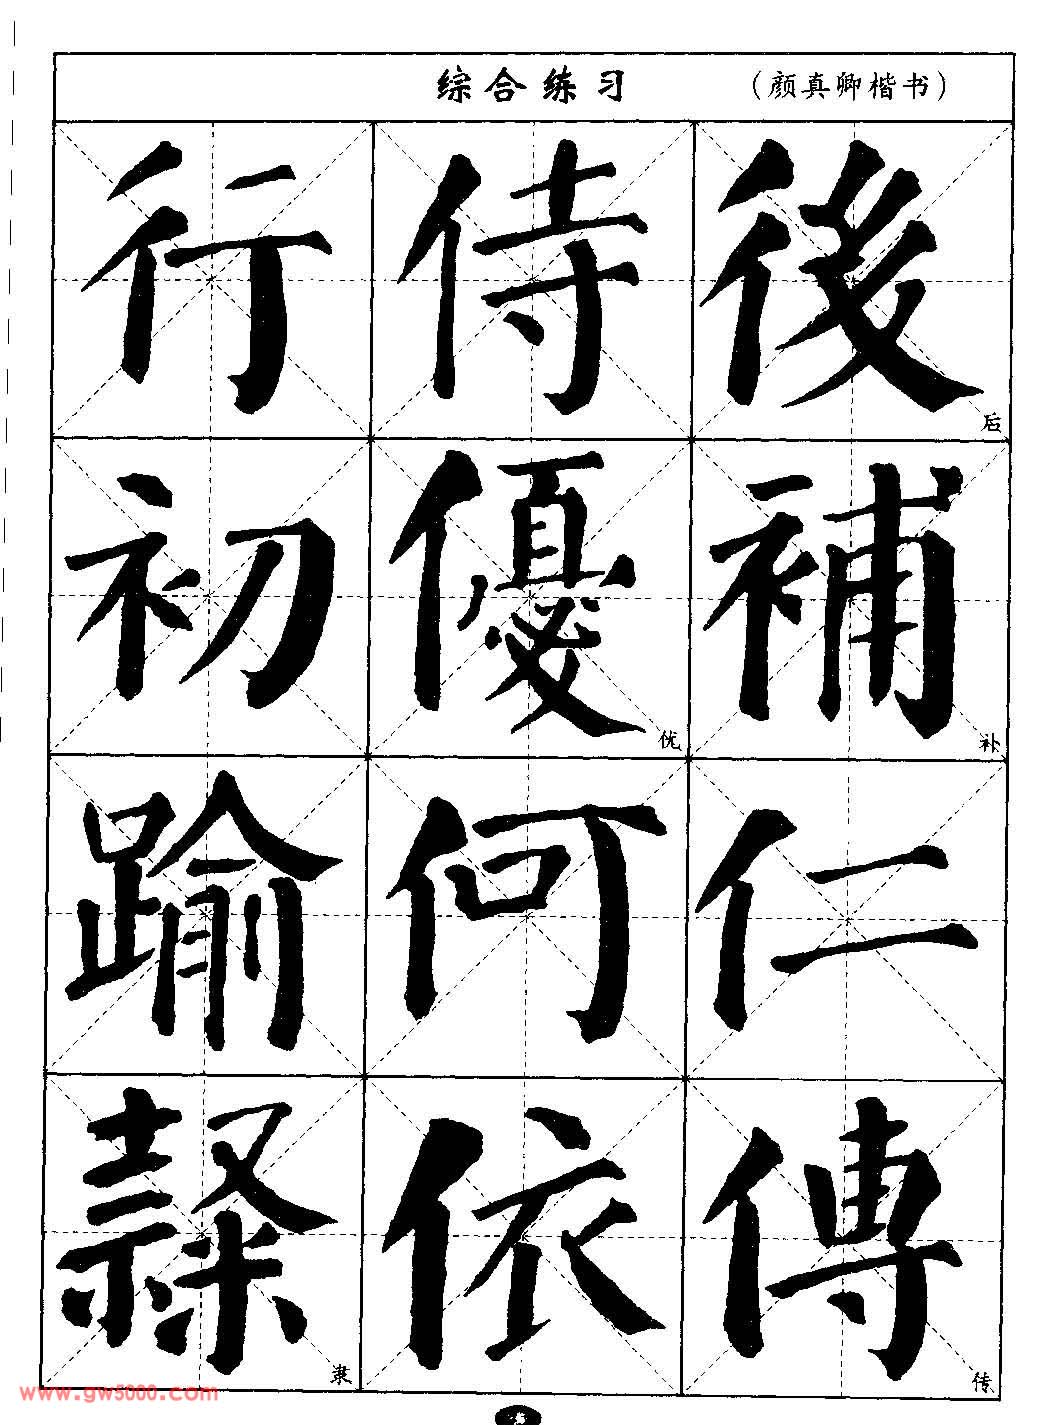 综合练习 （颜真卿楷书）
行 侍 後 后
初 優 优 補 补
踰 何 仁
隸 隶 依 傳 传
www.gw5000.com